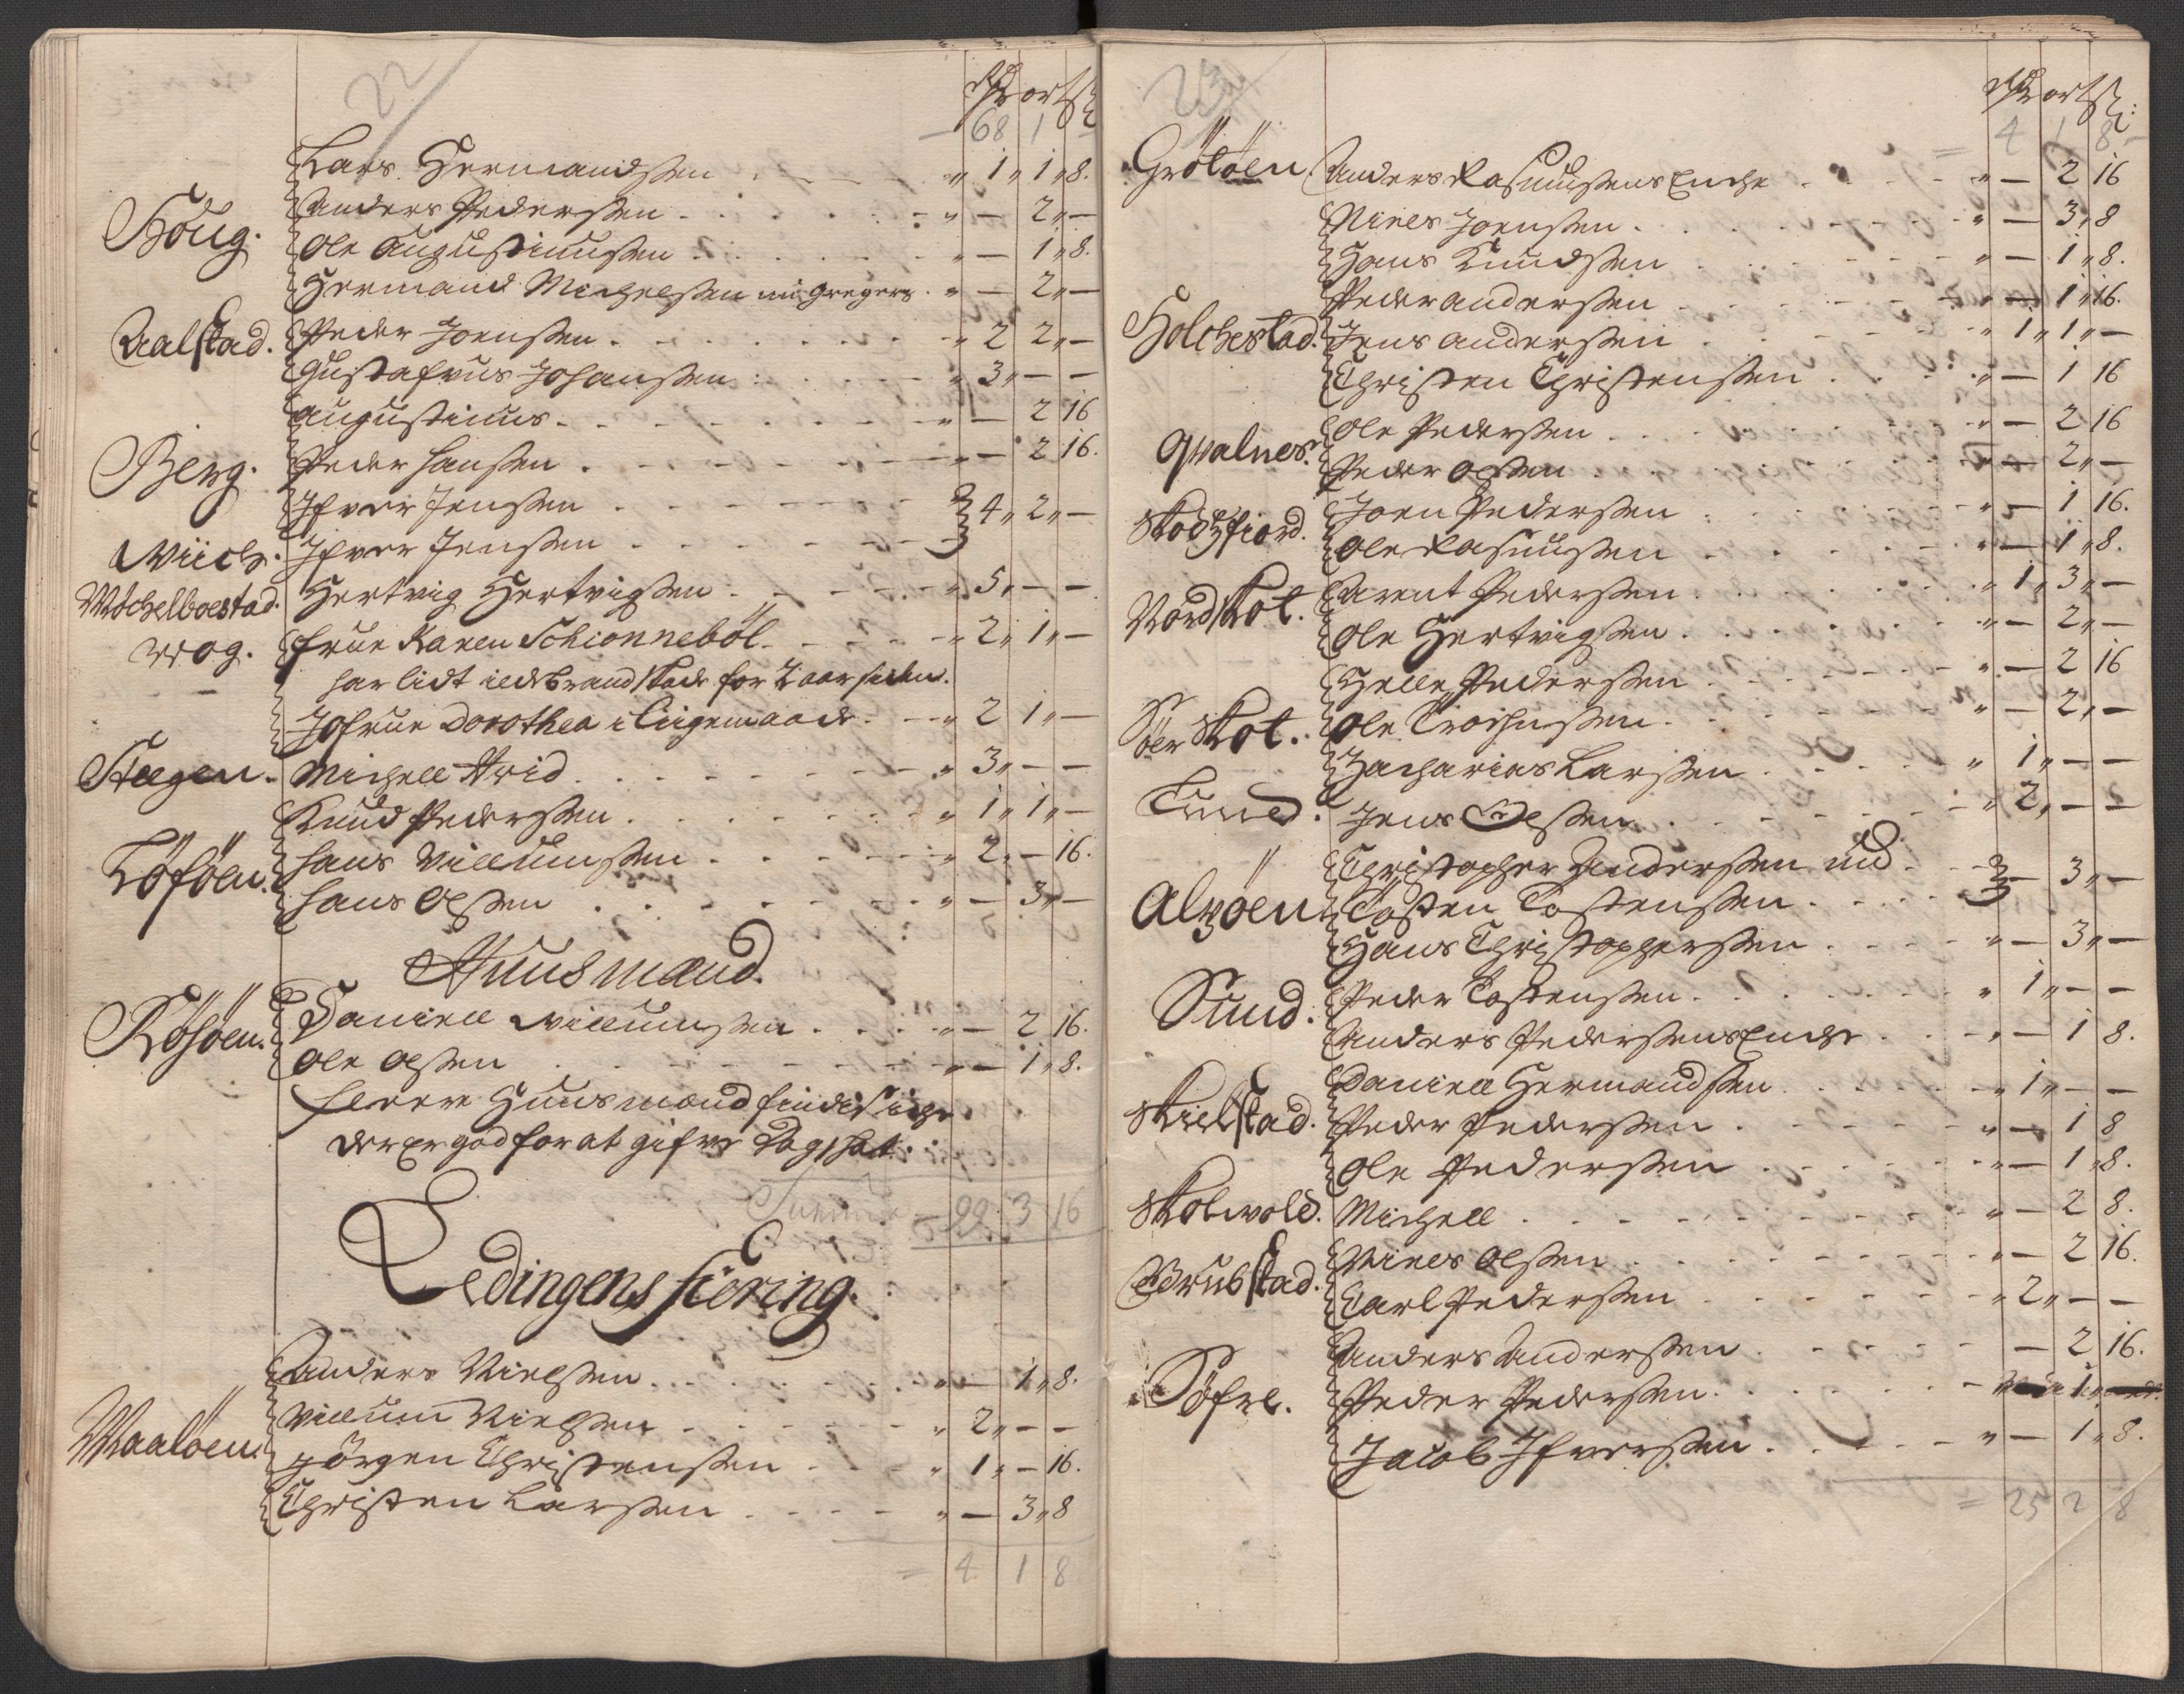 22
Rdr ort ß
68 1
Lars Hermandsen 1 1 8.
Houg. Anders Pedersen — 2 —
Ole Augustinusen — 1 8.
Hermand Michelsen nu Gregers — 2 —
Aalstad. Peder Joensen 2 2 —
Gustafvus Johansen 3 — —
Augustinus — 2 16
Berg. Peder Hansen — 2 16.
Ifver Jensen 4 2 —
Wiich. Ifver Jensen
Michelboestad. Hertvig Hertvigsen 5 — —
Wog. Frue Karen Schionneböl 2 1 —
har lidt ildebrand skade for 2 aar siden.
Jofrue Dorothea i ligemaade 2 1 —
Steegen. Michell Hvid 3 — —
Knud Pedersen 1 1 —
Löföen. Hans Villumsen 2 — 16.
Hans Olsen — 3 —
Huusmænd.
Röhöen. Daniell Willumsen — 2 16.
Ole Olsen — 1 8.
fleere Huusmænd findis icke
der er god for at gifve Dag skat.
Summa 99 3 16
Ledingens fiering.
Anders Nielsen — 1 8.
Maalöen. Villum Nielsen 2 — —
Jörgen Christensen 1 — 16.
Christen Larsen — 3 8
= 4 1 8
23
Rdr ort ß:
4 1 8
Grötöen. Anders Rasmusens Encke — 2 16
Niels Joensen — 3 8
Hans Knudsen — 1 8.
Peder Andersen — 1 16.
Holchestad. Jens Andersen 1 1 —
Christen Christensen — 1 16
Qvalnes. Ole Pedersen — 2 16
Peder Olsen — 2 —
Skodzfiord. Joen Pedersen — 1 16.
Ole Rasmusen — 1 8.
Nordskot. Arent Pedersen 1 3 —
Ole Hertvigsen — 2 —
Helle Pedersen — 2 16
Söerskot. Ole Croehnsen — 2 —
Zacharias Larsen 1 — —
Tuned. Jens Olsen 2 — —
Christopher Andersen nu — 3 —
Alzöen. Tosten Tostensen
Hans Christophersen — 3 —
Sund. Peder Tostensen 1 — —
Anders Pedersens Encke — 1 8.
Daniell Hermandsen 1 — —
Skielstad. Peder Pedersen — 1 8
Ole Pedersen — 1 8.
Skotwold. Michell — 2 8.
Brubstad. Niels Olsen — 2 16.
Carl Pedersen 2 — —
Anders Andersen — 2 16.
Söfre. Peder Pedersen 1
Jacob Ifversen — 1 8.
= 25 2 8